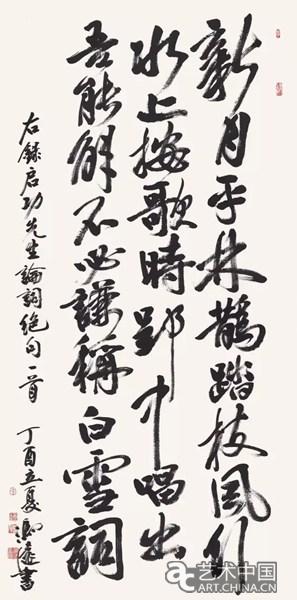 新月平林鵲踏枝風行
水上按歌時郢中唱出
吾能解不必謙稱白雪詞
右錄启功先生論詞絕句一首 丁酉立夏 書
艺术中国
ART.CHINA.CN